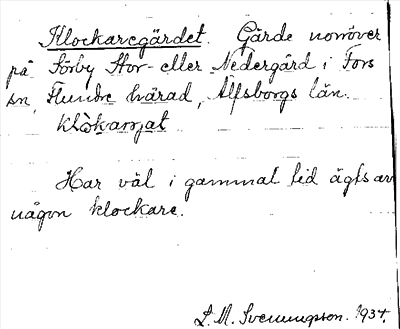 Klockaregärdet. Gärde norröver
på Förby Stor- eller Nedergård i Fors
sn, Flundre härad, Älfsborgs län.
Har väl i gammal tid ägts av
någon klockare.
L. M. Svenungson. 1937.